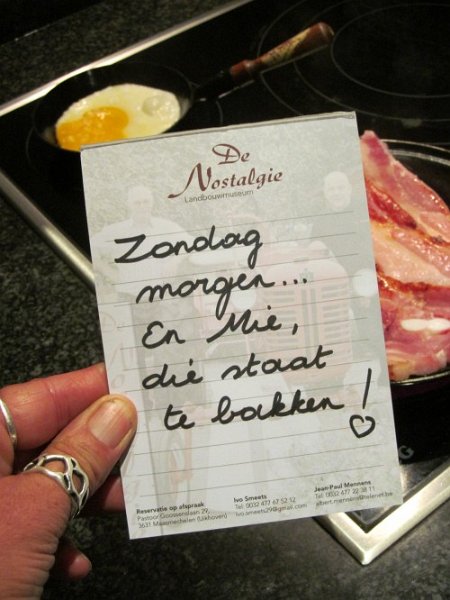 De
Nostalgie
Landbouwmuseum
Zondag
morgen...
En Mie,
die staat
te bakken!
Reservatie op afspraak
Pastoor Goossenslaan 29,
3631 Maasmechelen (Uikhoven)
Ivo Smeets
Tel: 0032 477 67 52 52
ivo.smeets29@gmail.com
Jean-Paul Mennens
Tel: 0032 477 22 38 11
albert.mennens@telenet.be